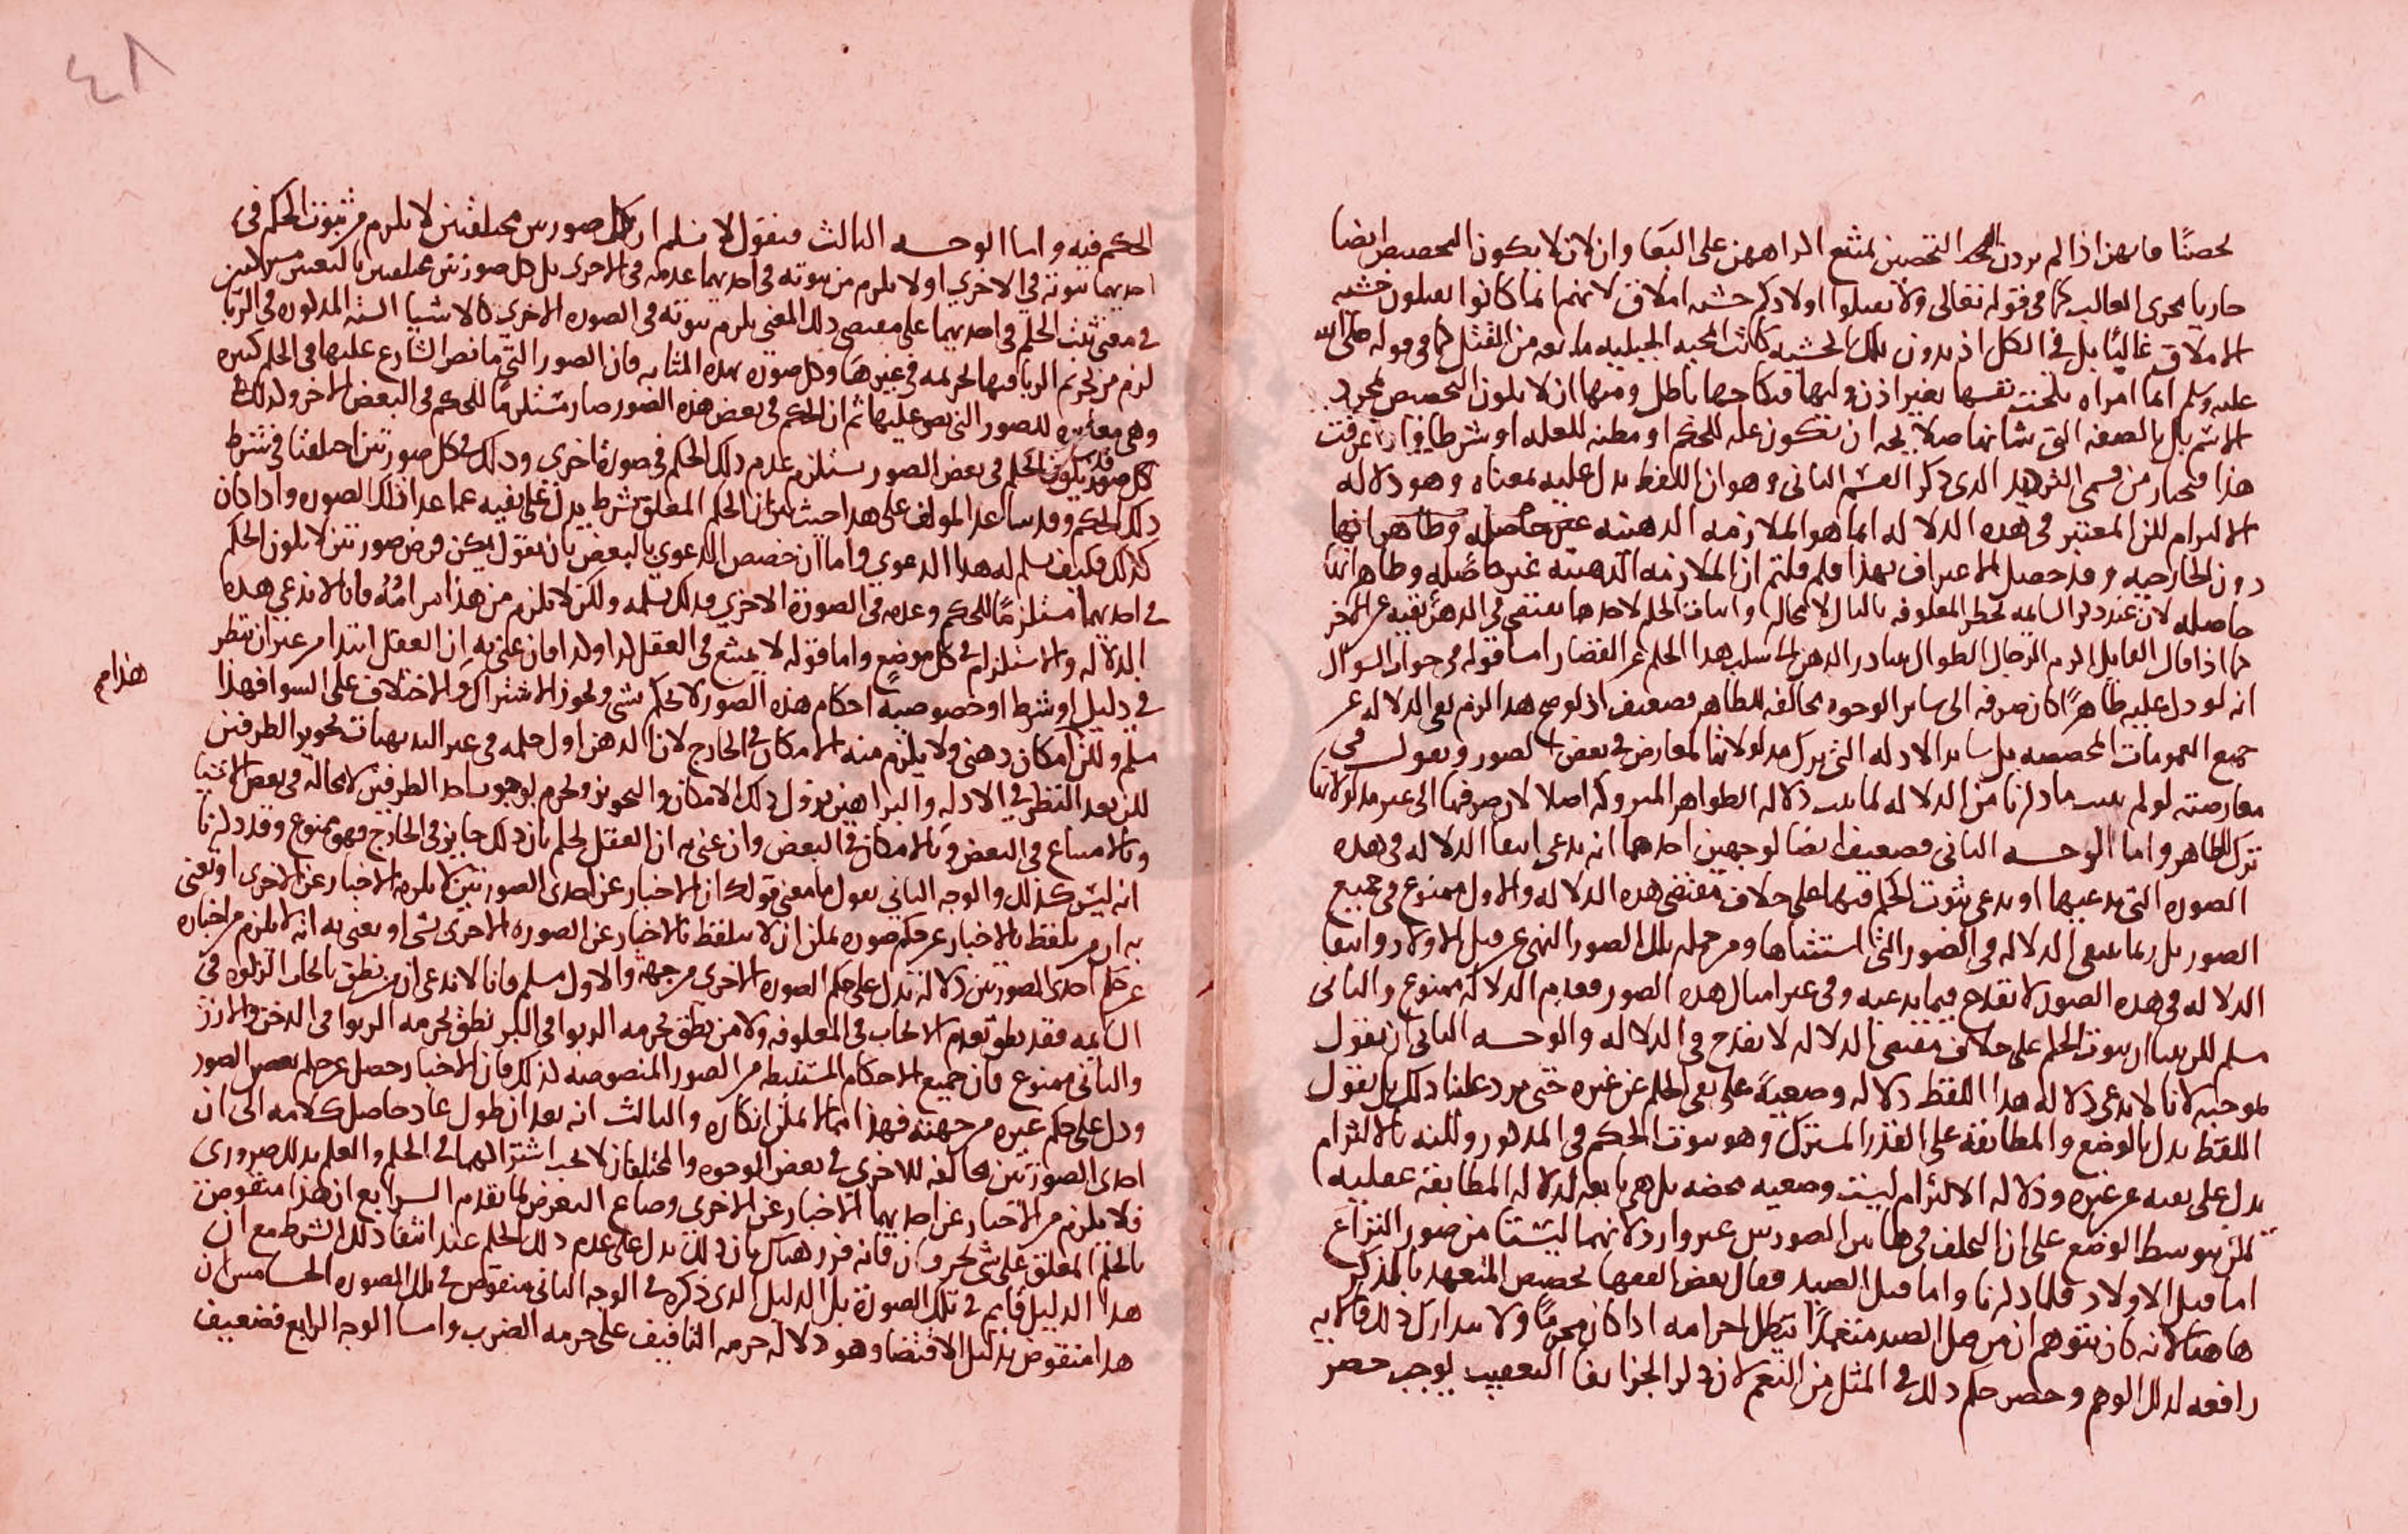 تحصنًا فانهن اذا لم يردن التحصن يمتنع اكراههن على البغا وان لا يكون التخصيص ايضا
جاريا مجرى الغالب كما في قوله تعالى ولا تقتلوا اولادكم خشيه املاق لانهم انما كانوا يقتلون خشيه
الاملاق غالبًا بل في الكل اذ بدون تلك الخشيه كانت المحبه الجبليه مانعه من القتل كما في قوله صلى الله
عليه وسلم ايما امراه نكحت نفسها بغير اذن وليها فنكاحها باطل ومنها ان لا يكون التخصيص بمجرد
الاسم بل بالصفه التي شانها صلاحيه ان تكون عله للحكم او مظنه للعله او شرطا واذا عرفت
هذا فنختار من قسمي الترديد الذي ذكر القسم الثاني وهو ان اللفظ يدل عليه بمعناه وهو دلاله
الالتزام لكن المعتبر في هذه الدلاله انما هو الملازمه الذهنيه
دون الخارجيه وقد حصل الاعتراف بهذا فلم قلتم ان الملازمه الذهنيه غير حاصله وظاهر انها
حاصله لان عند ذكر السايمه تخطر المعلوفه بالبال لا محاله واثبات الحكم لاحدها يقتضي في الذهن نفيه عن الاخر
كما اذا قال القايل اكرم الرجال الطوال يتبادر الذهن الى سلب هذا الحكم عن القصار واما قوله في جواب السوال
انه لو دل عليه ظاهرًا كان صرفه الى ساير الوجوه مخالفه للظاهر فضعيف اذ لو صح هذا لزم نفي الدلاله عن
جميع العمومات المخصصه بل ساير الادله التي يترك مدلولاتها لمعارض في بعض الصور ونقول في
معارضته لو لم يثبت ما ذكرنا من الدلاله لما ثبت دلاله الظواهر المتروكه اصلا لان صرفها الى غير مدلولاتها
ترك للظاهر واما الوجه الثاني فضعيف ايضا لوجهين احدهما انه يدعى انتفا الدلاله في هذه
الصوره التي يدعيها او يدعى ثبوت الحكم فيها على خلاف مقتضى هذه الدلاله والاول ممنوع في جميع
الصور بل ربما تنتفي الدلاله في الصور التي استثناها ومن جمله تلك الصور النهي عن قتل الاولاد وانتفا
الدلاله في هذه الصور لا تقدح فيما يدعيه وفي غير امثال هذه الصور فعدم الدلاله ممنوع والثاني
مسلم لكن بينا ان ثبوت الحكم على خلاف مقتضى الدلاله لا يقدح في الدلاله والوجه الثاني ان نقول
بموجبه لانا لا ندعي دلاله هذا اللفظ دلاله وضعيةً على نفي الحكم عن غيره حتى يرد علينا ذلك بل نقول
اللفظ يدل بالوضع والمطابقه على القدر المشترك وهو ثبوت الحكم في المذكور ولكنه بالالتزام
يدل على نفيه عن غيره ودلاله الالتزام ليست وضعيه محضه بل هي تابعه لدلاله المطابقه عقليه
لكن بتوسط الوضع على ان التخلف في هاتين الصورتين غير وارد لانهما ليستا من صور النزاع
اما قتل الاولاد فلما ذكرنا واما قتل الصيد فقال بعض الفقها تخصيص المتعمد بالذكر
هاهنا لانه كان يتوهم ان من قتل الصيد متعمدًا تبطل احرامه اذا كان محرمًا ولا يتدارك ذلك فالايه
رافعه لذلك الوهم وحصر حكم ذلك في المثل من النعم لان ذكر الجزا بفا التعقيب يوجب حصر
٤٨
الحكم فيه واما الوجه الثالث فنقول لا نسلم ان كل صورتين مختلفتين لا يلزم من ثبوت الحكم في
احديهما ثبوته في الاخرى او لا يلزم من ثبوته في احديهما عدمه في الاخرى بل كل صورتين مختلفتين
في معنى يثبت الحكم في احديهما على مقتضى ذلك المعنى يلزم ثبوته في الصوره الاخرى كالاشيا السته المذكوره في الربا
لزم من تحريم الربا فيها تحريمه في غيرها وكل صوره بهذه المثابه فان الصور التي ما نص الشارع عليها في الحكم كثيره
وهي مغايره للصور التي نص عليها ثم ان الحكم في بعض هذه الصور صار مستلزمًا للحكم في البعض الاخر وكذلك
قد يكون الحكم في بعض الصور يستلزم عدم ذلك الحكم في صورة اخرى وذلك في كل صورتين اختلفتا في شرط
ذلك الحكم وقد ساعد المولف على هذا حيث بين ان الحكم المعلق بشرط يدل على نفيه عما عدا تلك الصوره واذا كان
كذلك فكيف نسلم له هذا الدعوى واما ان خصص الدعوى بالبعض بان يقول يمكن فرض صورتين لا يكون الحكم
في احديهما مستلزمًا للحكم وعدمه في الصورة الاخرى فذلك نسلمه ولكن لا يلزم من هذا مرامُهُ فانا لا ندعي هذه
الدلاله والاستلزام في كل موضع واما قوله لا يمتنع في العقل كذا وكذا فان عنى به ان العقل ابتدا من غير ان ينظر
في دليل او شرط او خصوصية احكام هذه الصور لا يحكم بشي ويجوز الاشتراك والاختلاف على السوا فهذا
هذا م
مسلم ولكن امكان ذهني ولا يلزم منه الامكان في الخارج لان الذهن اول حكمه في غير البديهيات تجويز الطرفين
لكن بعد النظر في الادله والبراهين يزول ذلك الامكان والتجويز ويجزم بوجوب احد الطرفين لا محاله في بعض الاشيا
وبالامتناع في البعض وبالامكان في البعض وان عنى به ان العقل يحكم بان ذلك جايز في الخارج فهو ممنوع وقد ذكرنا
انه ليس كذلك والوجه الثاني نقول ما معنى قولك ان الاخبار عن احدى الصورتين لا يلزمه الاخبار عن الاخرى او تعني
به ان من تلفظ بالاخبار عن حكم صوره يمكن ان لا يتلفظ بالاخبار عن الصوره الاخرى بشي او تعني به انه لا يلزم من اخباره
عن حكم احدى الصورتين دلاله تدل على حكم الصوره الاخرى من جهته والاول مسلم فانا لا ندعي ان من نطق بايجاب الزكوه في
السايمه فقد نطق بعدم الايجاب في المعلوفه ولا من نطق بحرمه الربوا في البر نطق بحرمه الربوا في الدخن والارز
والثاني ممنوع فان جميع الاحكام المستنبطه من الصور المنصوصه كذلك فان الاخبار حصل عن حكم بعض الصور
ودل على حكم غيره من جهته فهذا مما لا يمكن انكاره والثالث انه بعد ان طول عاد حاصل كلامه الى ان
احدى الصورتين مخالفه للاخرى في بعض الوجوه والمختلفان لا يجب اشتراكهما في الحكم والعلم بذلك ضروري
فلا يلزم من الاخبار عن احديهما الاخبار عن الاخرى وضاع التعرض لما تقدم الرابع ان هذا منقوض
بالحكم المعلق على شي بحرف ان فانه قرر هناك بان ذلك يدل على عدم ذلك الحكم عند انتفا ذلك الشرط مع ان
هذا الدليل قايم في تلك الصورة بل الدليل الذي ذكره في الوجه الثاني منقوض في تلك الصوره الخامس ان
هذا منقوض بدليل الاقتضا وهو دلاله حرمه التافيف على حرمه الضرب واما الوجه الرابع فضعيف